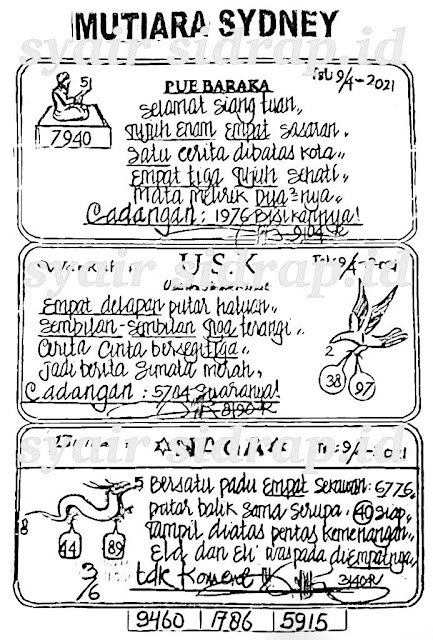 MUTIARA SYDNEY
syair sidrap.id
PUE BARAKA
Tgl: 9/4-2021
51
7940
Selamat siang tuan,,
Tujuh Enam Empat sasaran,
Satu cerita dibatas kota,,
Empat tiga Tujuh sehati,
Mata melirik Dua²nya,,
Cadangan: 1976 Bisikannya!
syair sidrap.id
USK
9/4-2021
Empat delapan putar haluan,,
Sembilan-Sembilan Tiga terangi,
Cerita Cinta bersegitiga,,
Jadi berita Sumata merah,
Cadangan: 5784 Suaranya!
2
38
97
syair sidrap.id
NAGA
9/4-2021
Bersatu padu Empat Sekawan: 6776,
putar balik sama serupa. 40 siap,
Tampil diatas pentas kemenangan
Eld dan Eli waspada di Empatnya,,
5
8
44
89
3/6
9460 1786 5915